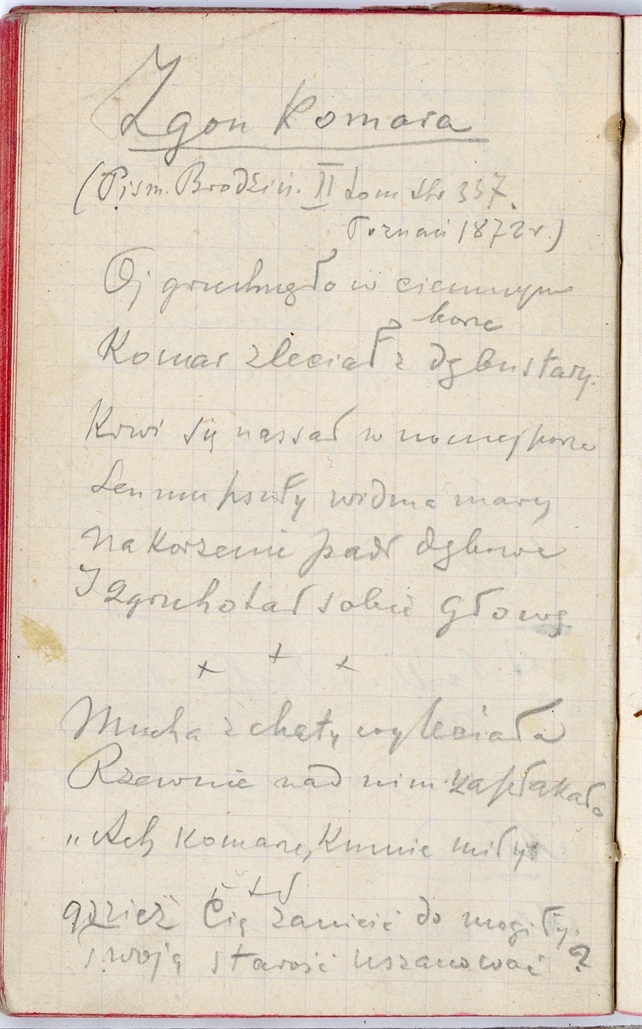 Zgon Komara
(Pism. Brodziń. II tom str 357.
Poznań 1872 r.)
Oj gruchnęło w ciemnym
borze
Komar zleciał z dębu stary.
Krwi się nassał w nocnej porze
Sen mu psuły widma mary
Na korzenie padł dębowe
I zgruchotał sobie głowę
+ + +
Mucha z chaty wyleciała
Rzewnie nad nim zapłakała
„Ach komarze, kumie miły
gdzież Cię zanieść do mogiły.
Twoją starość uszanować ?